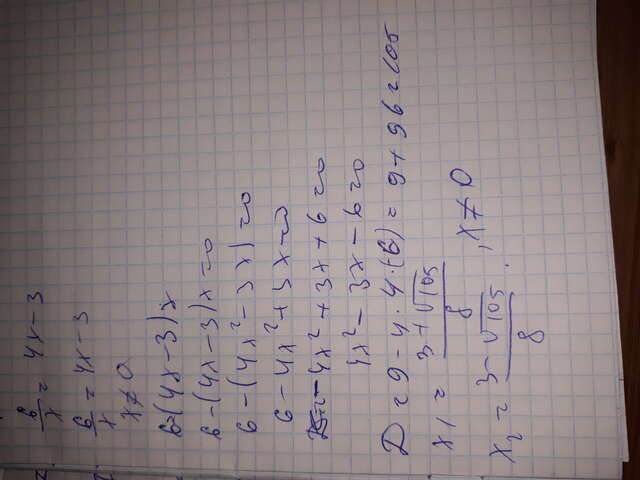 6/x = 4x - 3
6/x = 4x - 3
x ≠ 0
6 = (4x - 3)x
6 - (4x - 3)x = 0
6 - (4x² - 3x) = 0
6 - 4x² + 3x = 0
- 4x² + 3x + 6 = 0
4x² - 3x - 6 = 0
D = 9 - 4 · 4 · (6) = 9 + 96 = 105
x₁ = (3 + √105)/8
x₂ = (3 - √105)/8 . , x ≠ 0